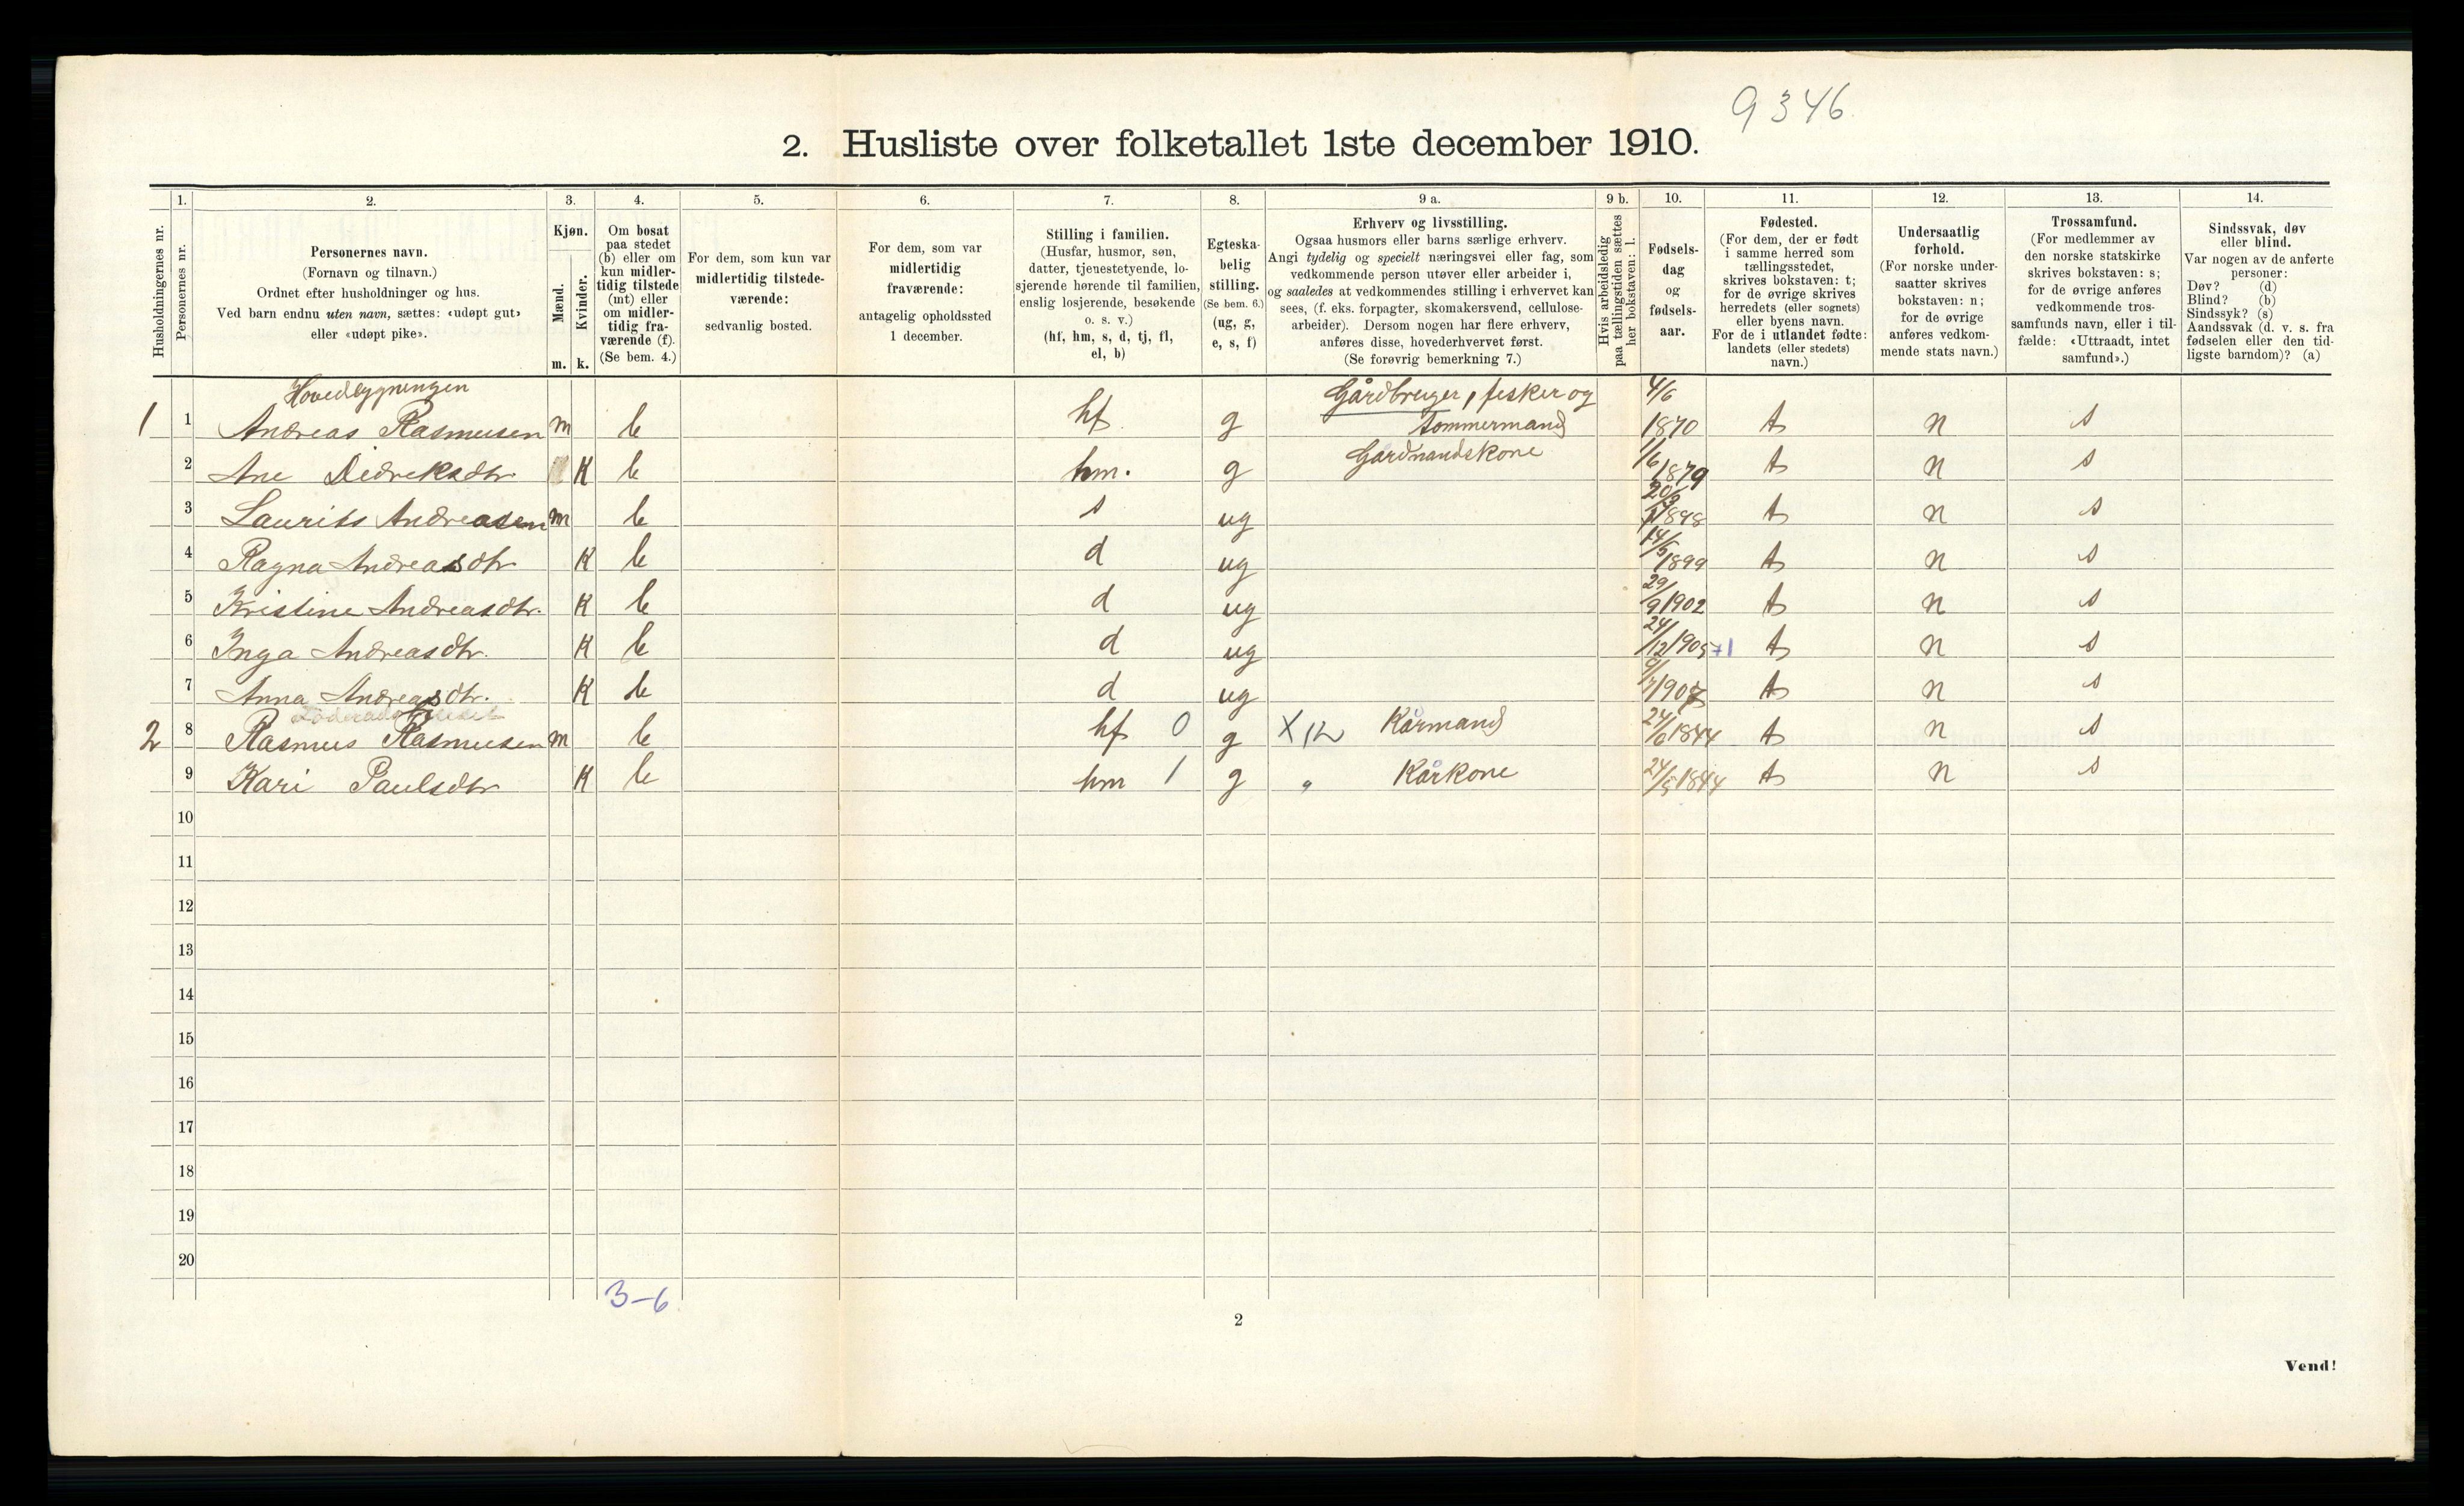 9346.
2. Husliste over folketallet 1ste december 1910.
Husholdningernes nr.
1.
Personernes nr.
2.
Personernes navn.
(Fornavn og tilnavn.)
Ordnet efter husholdninger og hus.
Ved barn endnu uten navn, sættes: «udøpt gut»
eller «udøpt pike».
3.
Kjøn.
Mænd.
Kvinder.
m. k.
4.
Om bosat
paa stedet
(b) eller om
kun midler-
tidig tilstede
(mt) eller
om midler-
tidig fra-
værende (f).
(Se bem. 4.)
5.
For dem, som kun var
midlertidig tilstede-
værende:
sedvanlig bosted.
6.
For dem, som var
midlertidig
fraværende:
antagelig opholdssted
1 december.
7.
Stilling i familien.
(Husfar, husmor, søn,
datter, tjenestetyende, lo-
sjerende hørende til familien,
enslig losjerende, besøkende
o. s. v.)
(hf, hm, s, d, tj, fl,
el, b)
8.
Egteska-
belig
stilling.
(Se bem. 6.)
(ug, g,
e, s, f)
9 a.
Erhverv og livsstilling.
Ogsaa husmors eller barns særlige erhverv.
Angi tydelig og specielt næringsvei eller fag, som
vedkommende person utøver eller arbeider i,
og saaledes at vedkommendes stilling i erhvervet kan
sees, (f. eks. forpagter, skomakersvend, cellulose-
arbeider). Dersom nogen har flere erhverv,
anføres disse, hovederhvervet først.
(Se forøvrig bemerkning 7.)
9 b.
Hvis arbeidsledig
paa tællingstiden sættes
her bokstaven: l.
10.
Fødsels-
dag
og
fødsels-
aar.
11.
Fødested.
(For dem, der er født
i samme herred som
tællingsstedet,
skrives bokstaven: t;
for de øvrige skrives
herredets (eller sognets)
eller byens navn.
For de i utlandet fødte:
landets (eller stedets)
navn.)
12.
Undersaatlig
forhold.
(For norske under-
saatter skrives
bokstaven: n;
for de øvrige
anføres vedkom-
mende stats navn.)
13.
Trossamfund.
(For medlemmer av
den norske statskirke
skrives bokstaven: s;
for de øvrige anføres
vedkommende tros-
samfunds navn, eller i til-
fælde: «Uttraadt, intet
samfund».)
14.
Sindssvak, døv
eller blind.
Var nogen av de anførte
personer:
Døv? (d)
Blind? (b)
Sindssyk? (s)
Aandssvak (d. v. s. fra
fødselen eller den tid-
ligste barndom)? (a)
Hovedbygningen
1 1 Andreas Rasmusen m b hf g Gårdbruger, fisker og tømmermand 4/6 1870 t n s
2 Ane Didreksdtr K b hm. g Gardmandskone 1/6 1879 t n s
3 Laurits Andreasen m b s ug 1898 t n s
4 Ragna Andreasdtr K b d ug 14/5 1899 t n s
5 Kristine Andreasdtr. K b d ug 29/9 1902 t n s
6 Inga Andreasdtr. K b d ug 24/12 1905 +1 t n s
7 Anna Andreasdtr. K b d ug 9/7 1907 t n s
2 8 Rasmus Rasmusen m b hf 0 g X12 Kårmand 24/6 1844 t n s
9 Kari Paulsdtr K b hm 1 g " Kårkone 24/5 1844 t n s
10
11
12
13
14
15
16
17
18
19
20
3-6
2
Vend!